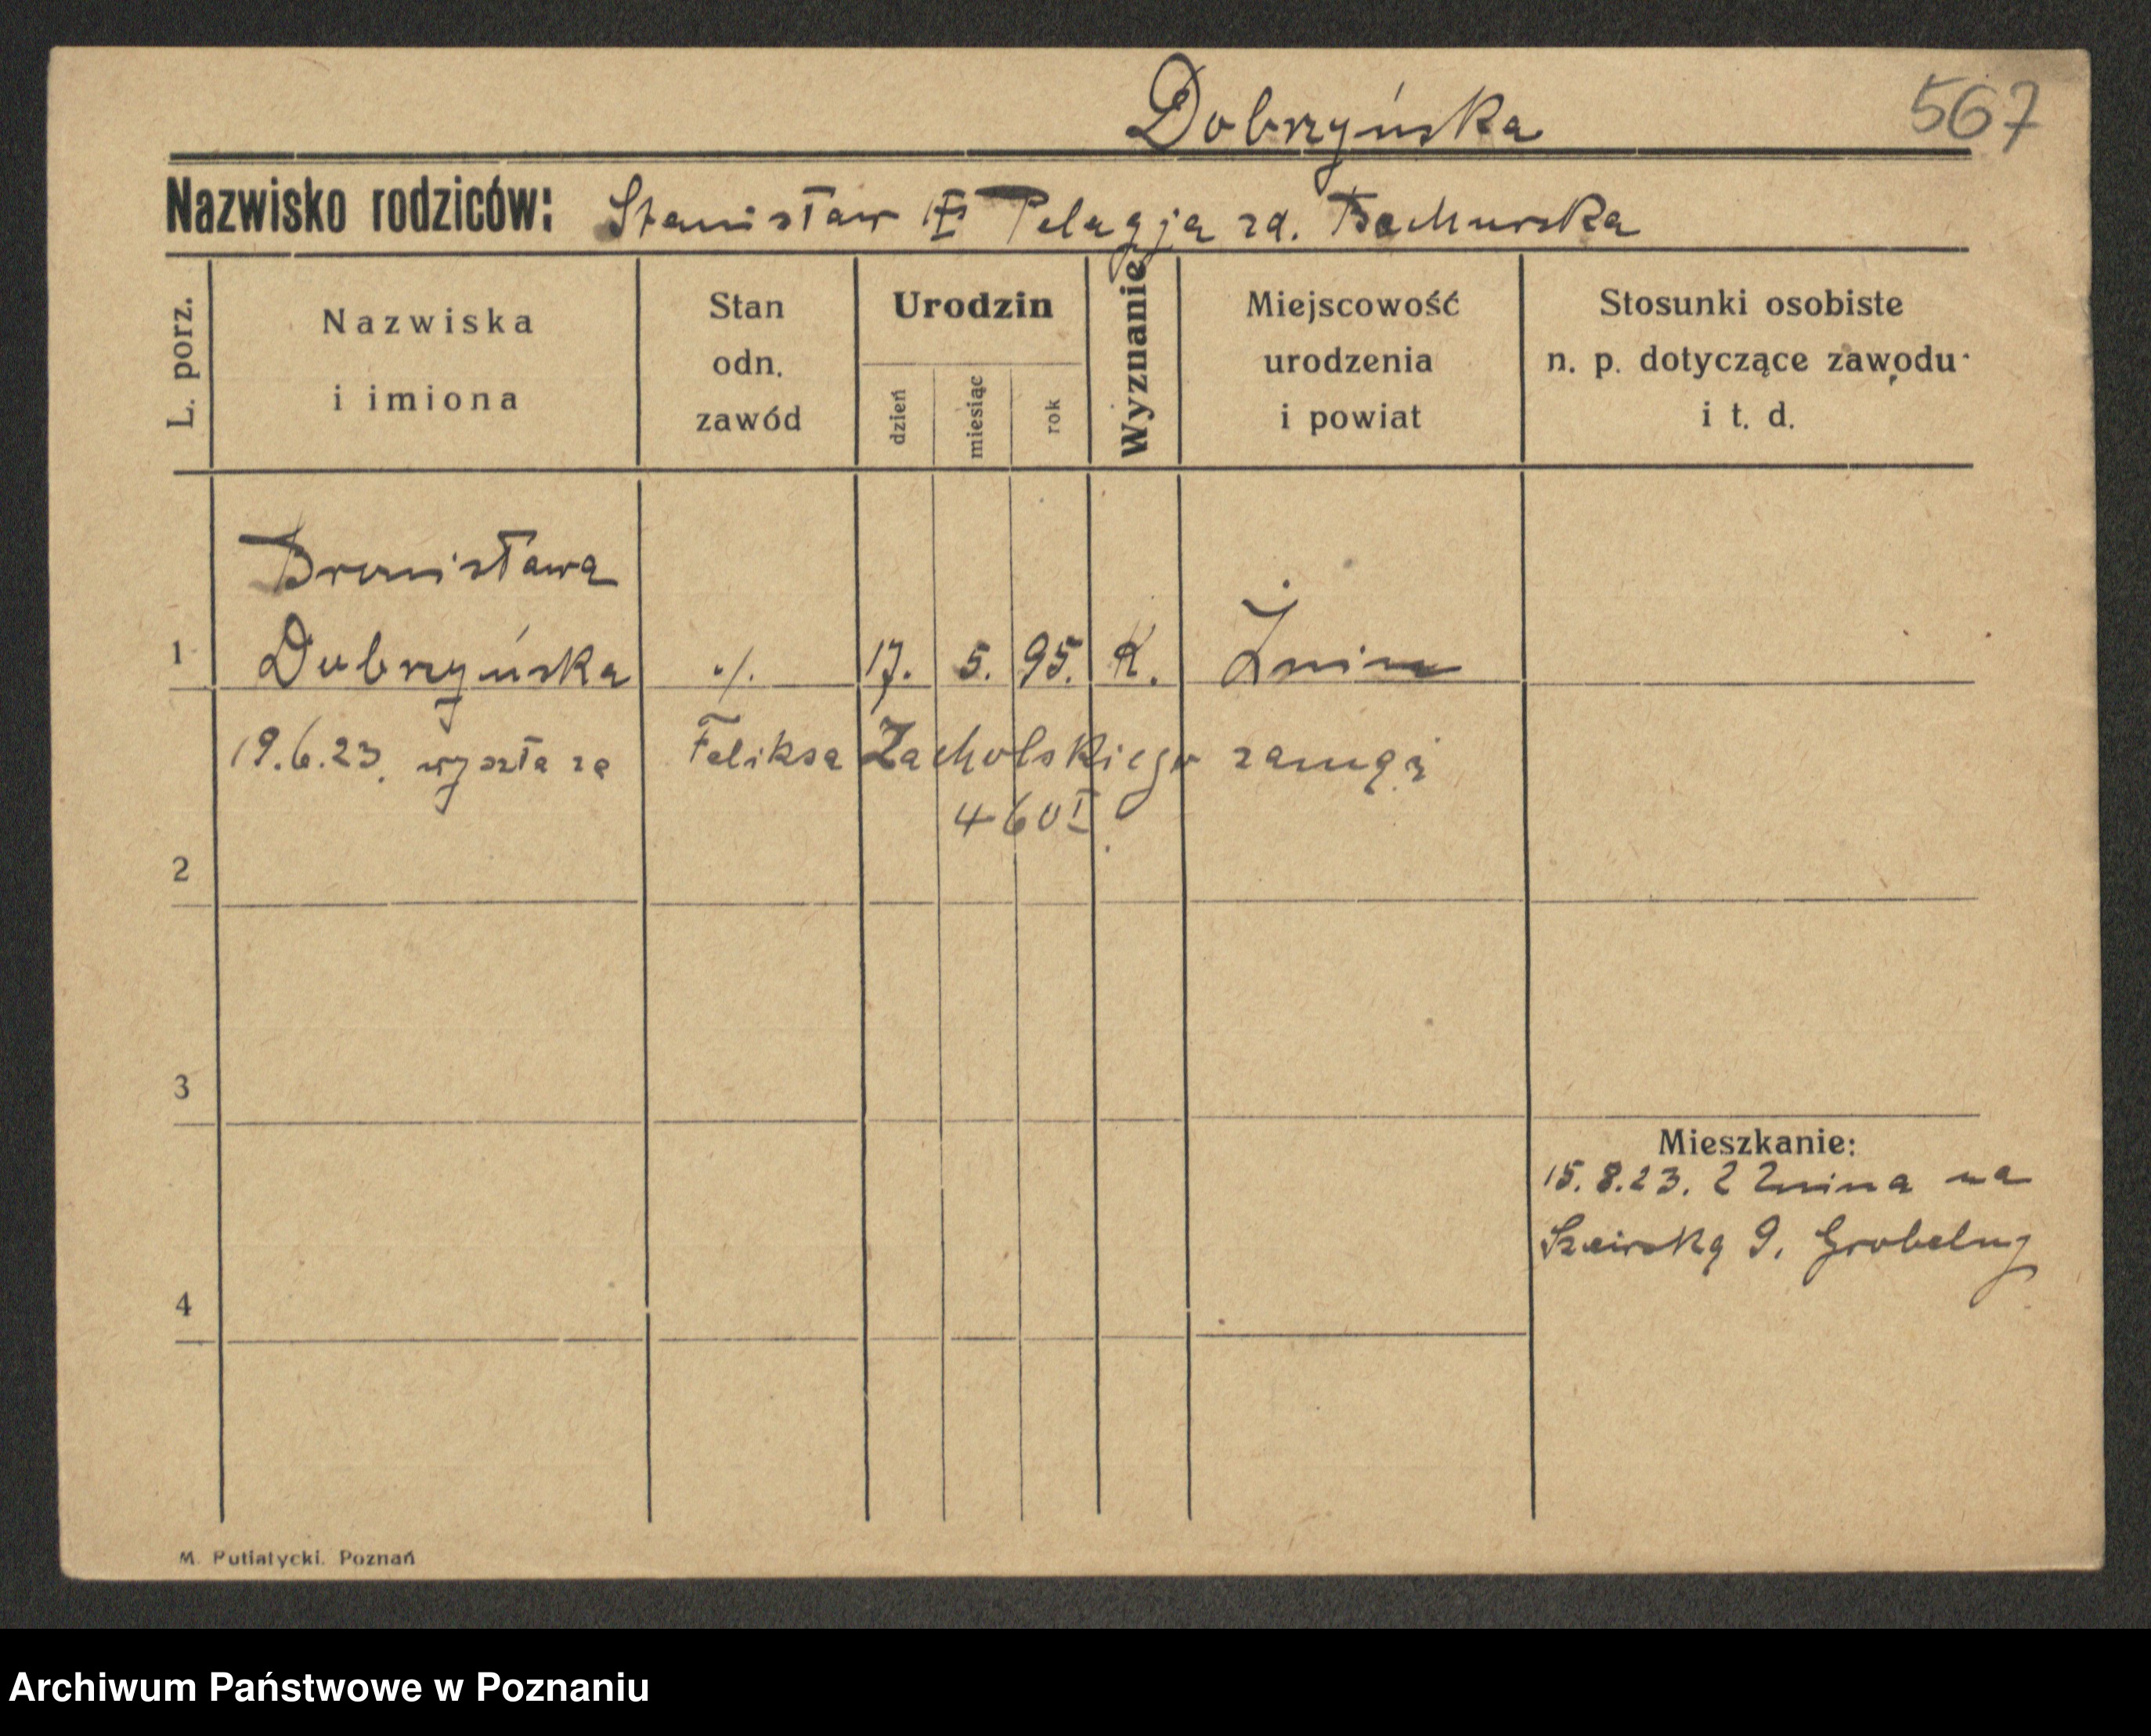 Dobrzyńska
567
Nazwisko rodziców: Stanisław Pelagja zd. Bochurska
L. porz.
Nazwiska
i imiona
Stan
odn.
zawód
Urodzin
dzień
miesiąc
rok
Wyznanie
Miejscowość
urodzenia
i powiat
Stosunki osobiste
n. p. dotyczące zawodu
i t. d.
Bronisława
1 Dobrzyńska ./. 17. 5. 95. K. Żnin
19.6.23. wyszła za Feliksa Zacholskiego zamąż
460 I
2
3
Mieszkanie:
15.8.23. z Żnina na
9. Grobelny
4
M. Putiatycki. Poznań
Archiwum Państwowe w Poznaniu